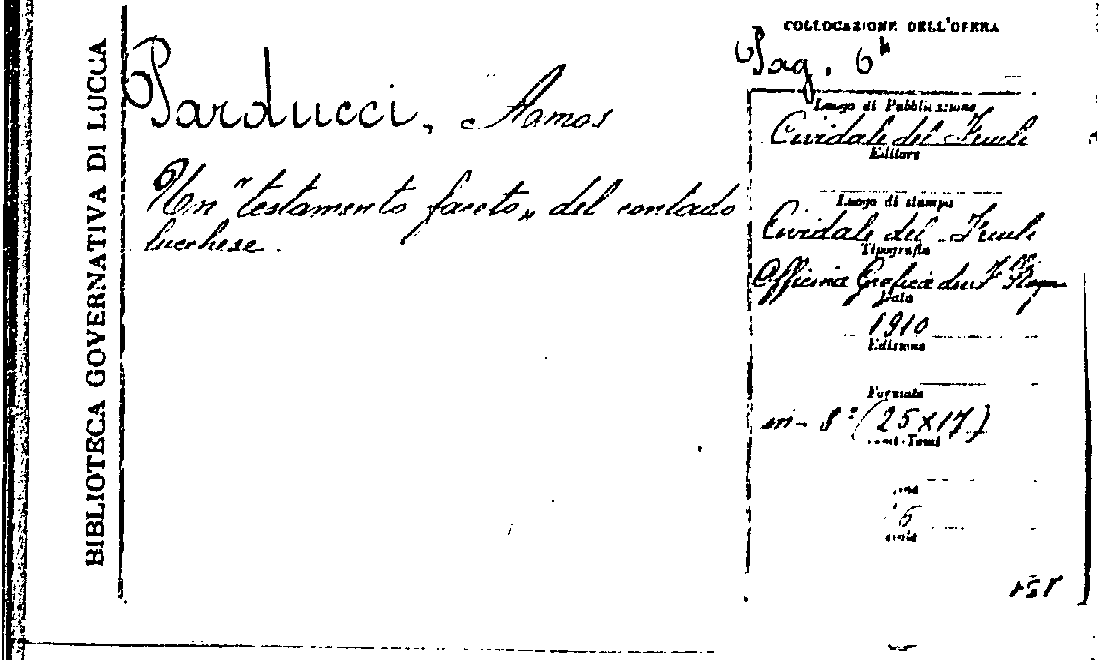 BIBLIOTECA GOVERNATIVA DI LUCCA
Parducci, Amos
Un "testamento faceto„ del contado
lucchese.
COLLOCAZIONE DELL'OPERA
Pag. 6
Luogo di Pubblicazione
Cividale del Friuli
Editore
Luogo di stampa
Cividale del Friuli
Tipografia
Officina Grafica dei F.
Data
1910
Edizione
Formato
in-8° (25x17)
6